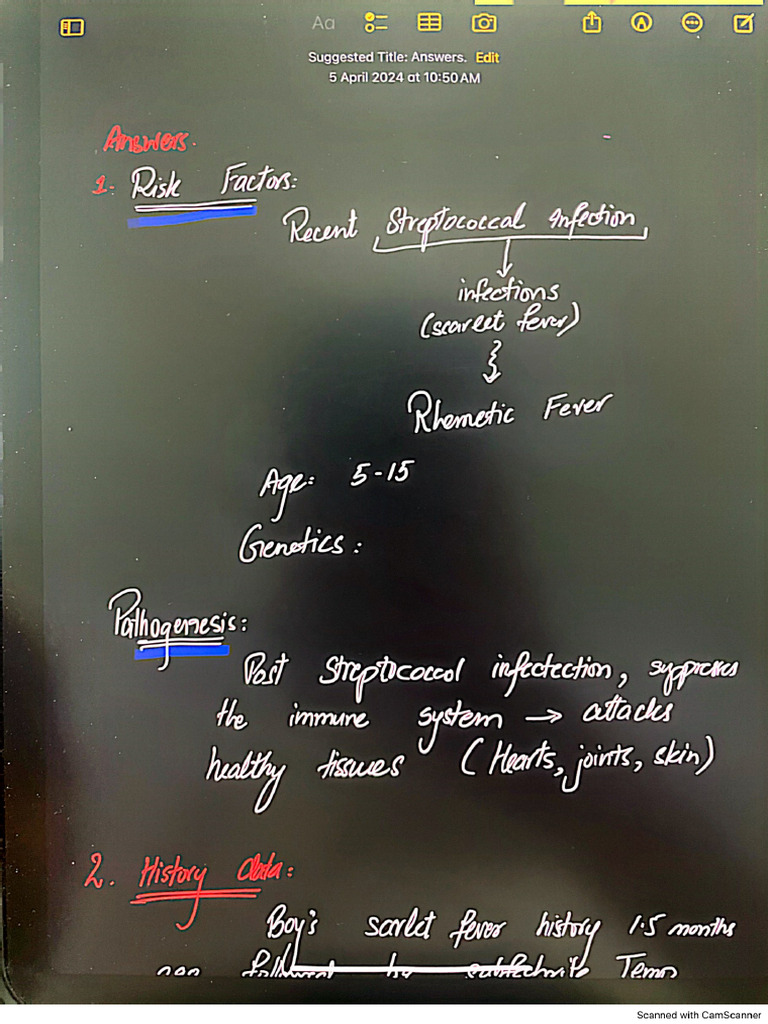 Aa
Suggested Title: Answers. Edit
5 April 2024 at 10:50 AM
Answers.
1. Risk Factors:
Recent Streptococcal Infection
infections
(scarlet fever)
Rhemetic Fever
Age: 5-15
Genetics:
Pathogenesis:
Post Streptococcol infectection, suppresses
the immune system → attacks
healthy tissues (Hearts, joints, skin)
2. History data:
Boy's sarlet fever history 1.5 months
Temp
Scanned with CamScanner